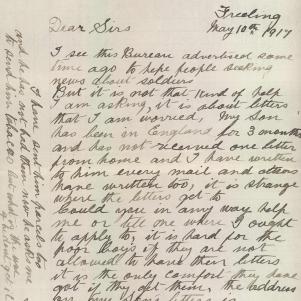 Freeling
May 10th 1917
Dear Sirs
I see this Bureau advertised some
time ago to help people seeking
news about soldiers
But it is not that kind of help
I am asking, it is about letters
that I am worried, My Son
has been in England for 3 months
and has not received one letter
from home and I have written
to him every mail and others
have written too, it is strange
where the letters get to
Could you in any way help
me or tell me where I ought
to apply to, it is hard for the
poor boys if they are not
allowed to have their letters
it is the only comfort they have
got if they get them, the address
on my Son's letters is
I have sent him parcels too
and he has not had them now he wants me
to send him tobacco but what is the use